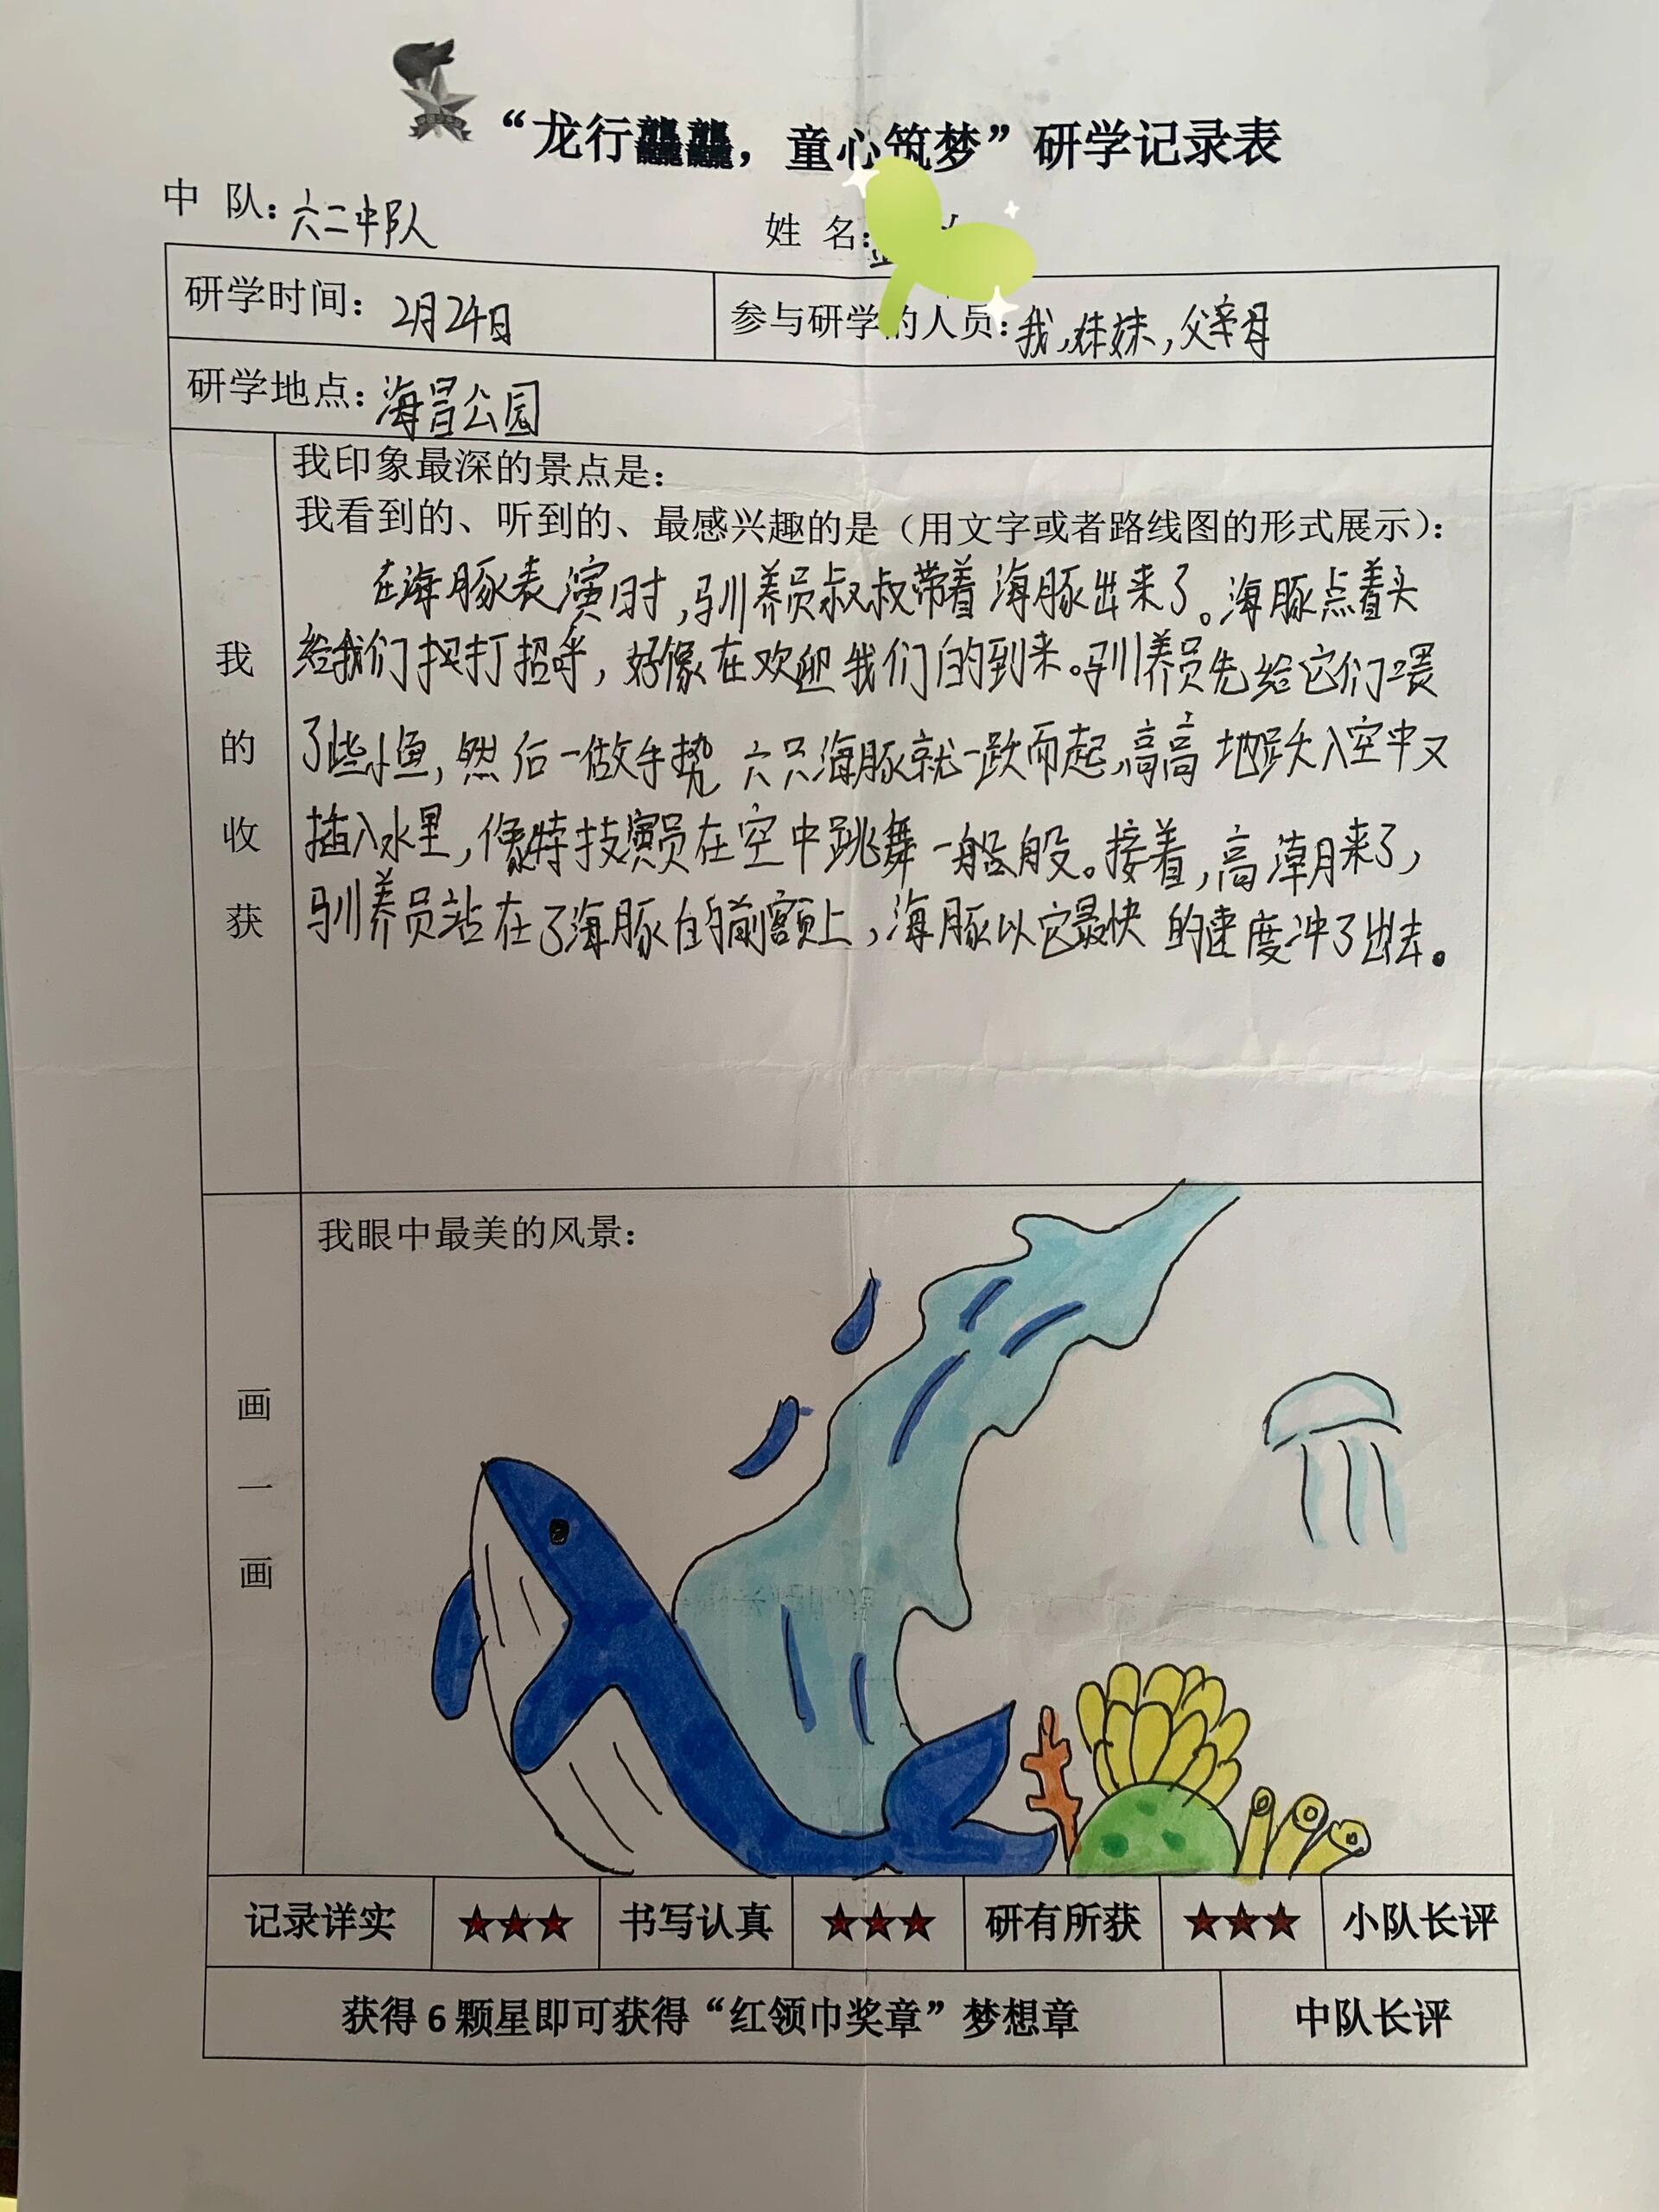 “龙行龘龘，童心筑梦”研学记录表
中 队：六二中队
姓 名：
研学时间：2月24日
参与研学的人员：我，妹妹，父亲母
研学地点：海昌公园
我印象最深的景点是：
我看到的、听到的、最感兴趣的是（用文字或者路线图的形式展示）：
在海豚表演时，驯养员叔叔带着海豚出来了。海豚点着头
给我们打招呼，好像在欢迎我们的到来。驯养员先给它们喂
了些小鱼，然后一做手势 六只海豚就一跃而起，高高地跃入空中又
插入水里，像特技演员在空中跳舞一般般。接着，高潮来了，
驯养员站在了海豚的前额上，海豚以它最快的速度冲了出去。
我的收获
我眼中最美的风景：
画一画
记录详实 ★★★ 书写认真 ★★★ 研有所获 ★★★ 小队长评
获得6颗星即可获得“红领巾奖章”梦想章 中队长评